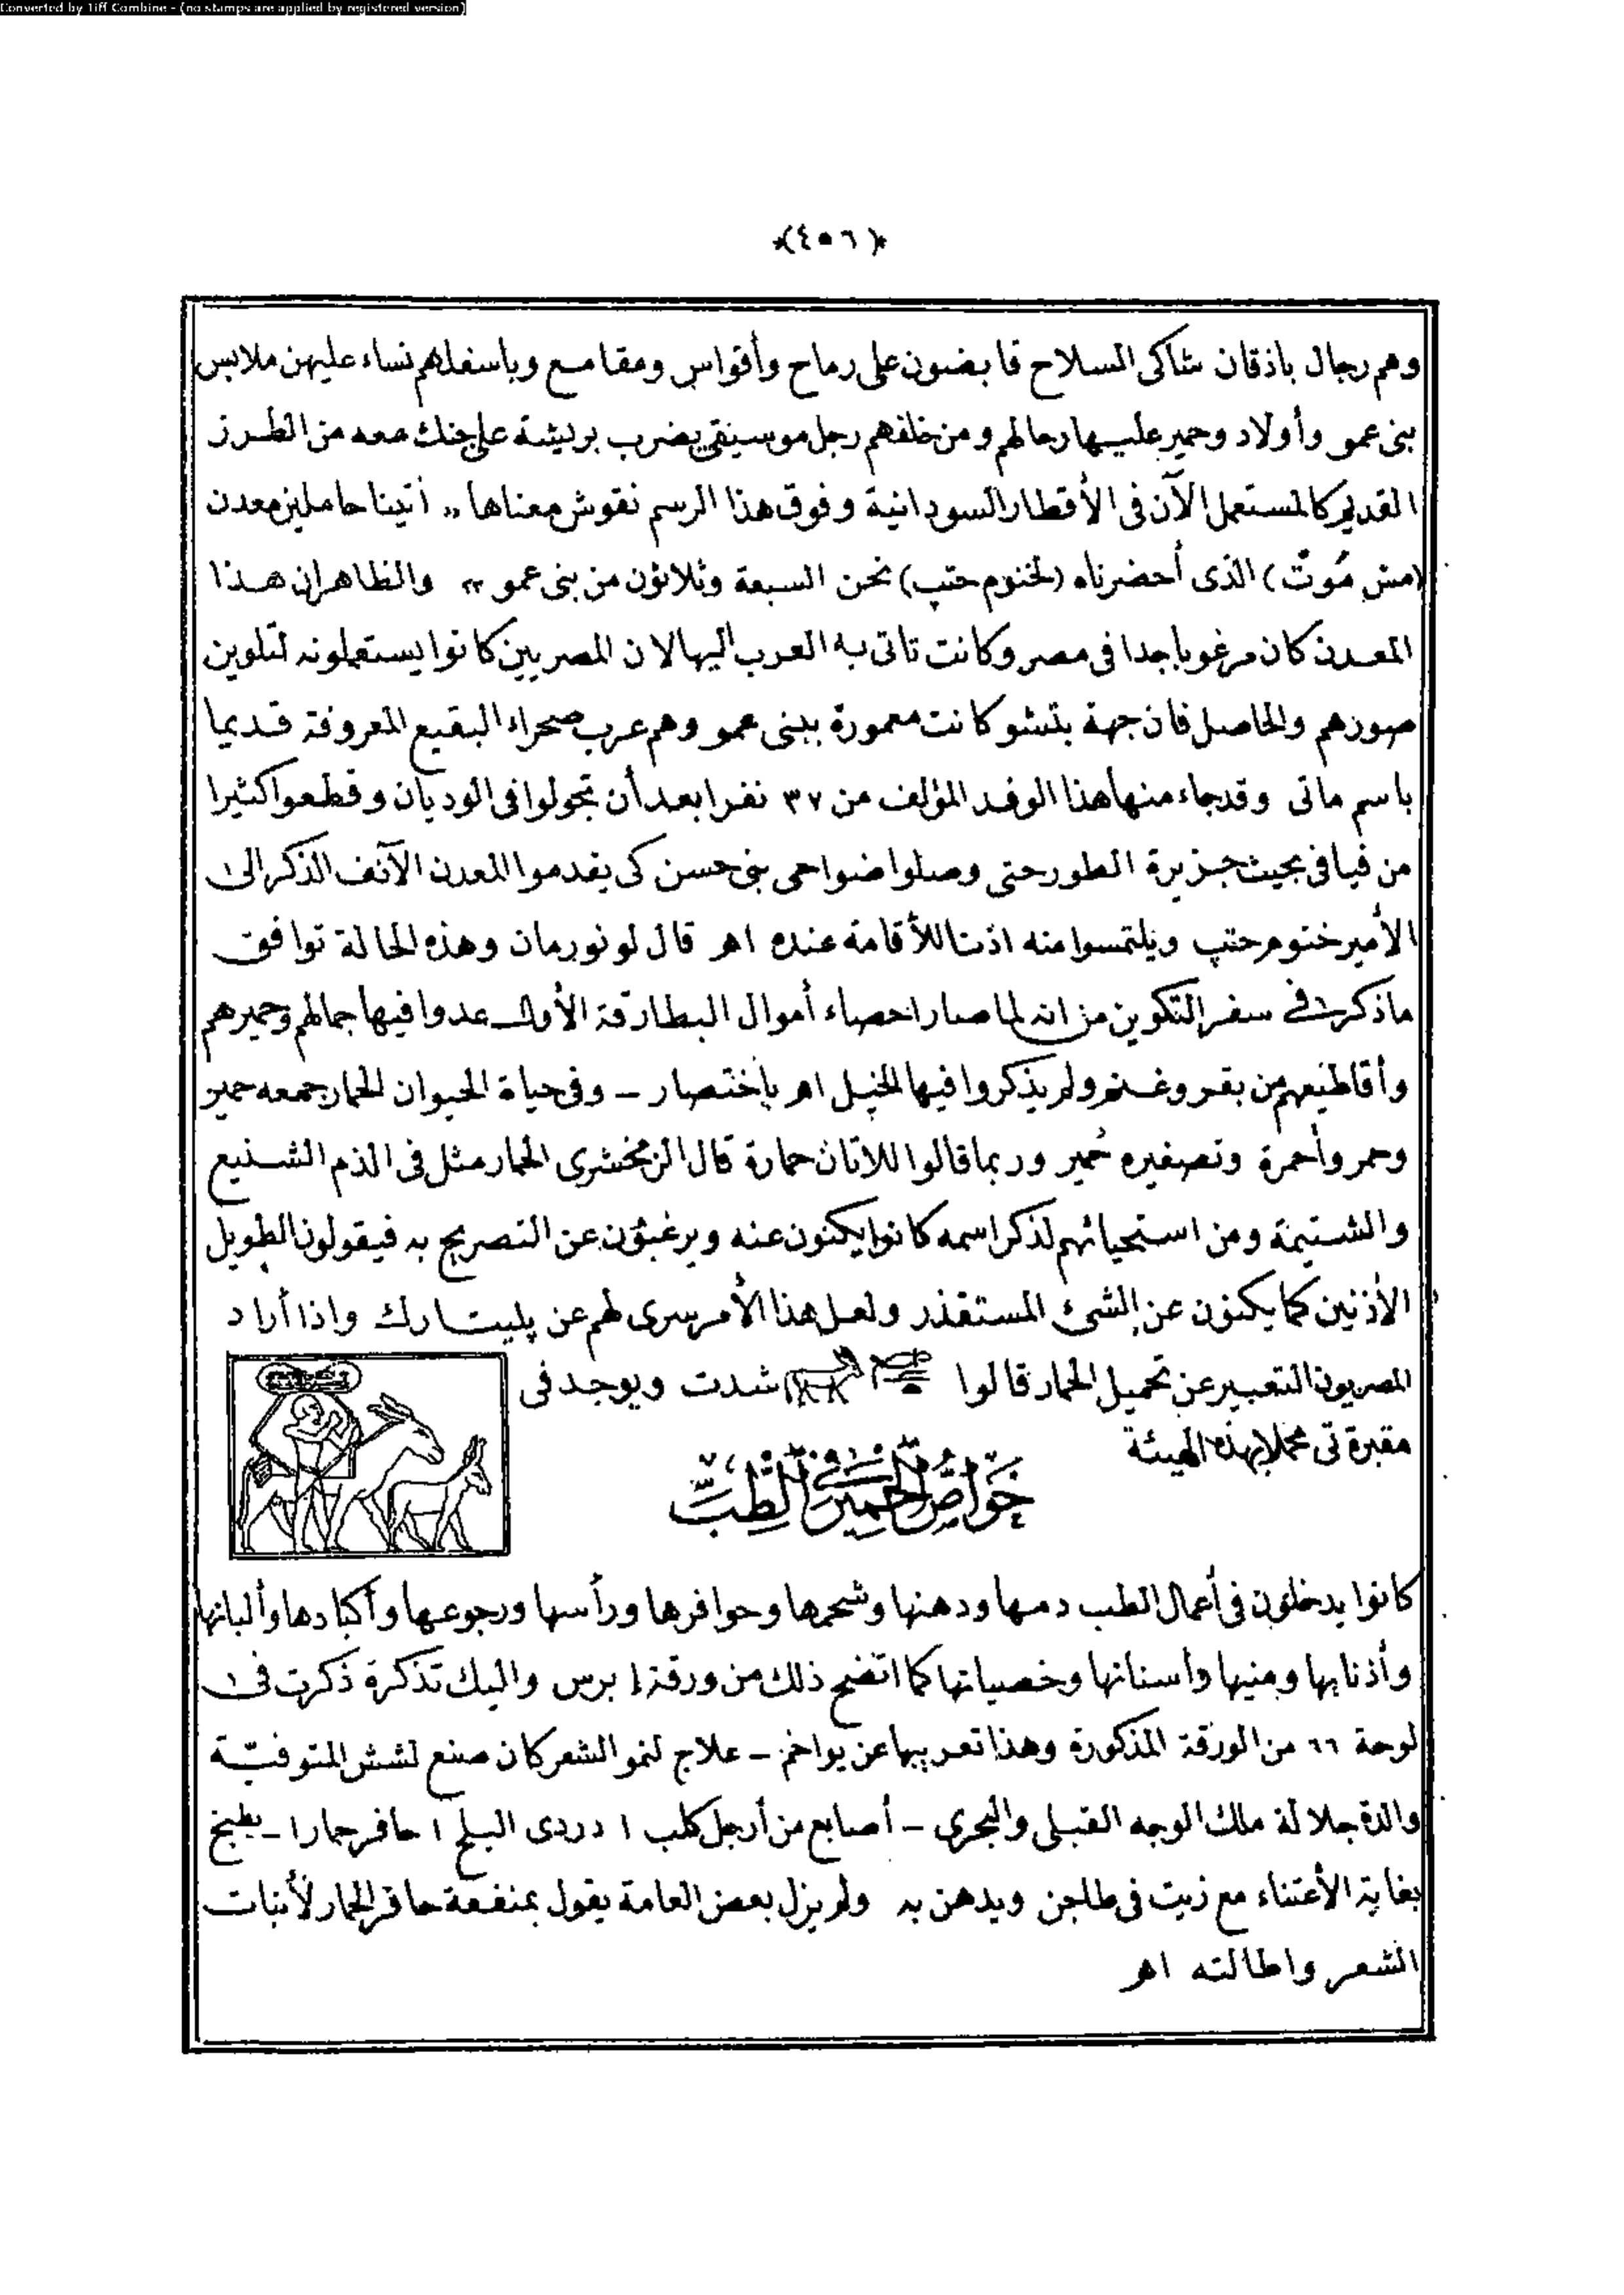 Converted by Tiff Combine - (no stamps are applied by registered version)
﴿٤٥٦﴾
وهم رجال باذقان شاكى السلاح قابضون على رماح وأقواس ومقامع وباسفلهم نساء عليهن ملابس
بنى عمو وأولاد وحمير عليها رحالهم ومن خلفهم رجل موسيقى يضرب بريشة على جنك معه من الطرز
القديم كالمستعمل الآن فى الأقطار السودانية وفوق هذا الرسم نقوش معناها „ أتينا حاملين معدن
(مش مُوتْ) الذى أحضرناه (لخنوم حتب) نحن السبعة وثلاثون من بنى عمو „ والظاهر ان هذا
المعدن كان مرغوبا جدا فى مصر وكانت تاتى به العرب اليها لان المصريين كانوا يستعملونه لتلوين
صورهم والحاصل فان جهة بتشو كانت معمورة ببنى عمو وهم عرب صحراء البقيع المعروفة قديما
باسم ماتى وقد جاء منها هذا الوفد المؤلف من ٣٧ نفرا بعد أن تجولوا فى الوديان وقطعوا كثيرا
من فيافى بحيث جزيرة الطور حتى وصلوا ضواحى بنى حسن كى يقدموا المعدن الآنف الذكر الى
الأمير خنوم حتب ويلتمسوا منه اذنا للأقامة عنده اهـ قال لونورمان وهذه الحالة توافق
ماذكر فى سفر التكوين من انه لما صار احصاء أموال البطارقة الأول عدوا فيها جمالهم وحميرهم
وأقاطيعهم من بقر وغنم ولم يذكروا فيها الخيل اهـ باختصار ـ وفى حياة الحيوان الحمار جمعه حمير
وحمر وأحمرة وتصغيره حُمير وربما قالوا للاتان حمارة قال الزمخشرى الحمار مثل فى الذم الشنيع
والشتيمة ومن استحيائهم لذكر اسمه كانوا يكنون عنه ويرغبون عن التصريح به فيقولون الطويل
الأذنين كما يكنون عن الشئ المستقذر ولعل هذا الأمر سرى لهم عن پليتارك واذا أراد
المصريون التعبير عن تحميل الحمار قالوا شدت ويوجد فى
مقبرة تى محملا بهذه الهيئة
خَوَاصُّ الحَمِيرِ فِى الطِبِّ
كانوا يدخلون فى أعمال الطب دمها ودهنها وشحمها وحوافرها ورأسها ورجوعها وأكبادها وألبانها
وأذنابها ومنيها واسنانها وخصياتها كما اتضح ذلك من ورقة إبرس واليك تذكرة ذكرت فى
لوحة ٦٦ من الورقة المذكورة وهذا تعريبها عن يواخم ـ علاج لنمو الشعر كان صنع لشش المتوفيّة
والدة جلالة ملك الوجه القبلى والبحرى ـ أصابع من أرجل كلب ١ دردى البلح ١ حافر حمار ١ ـ يطبخ
بغاية الأعتناء مع زيت فى طاجن ويدهن به ولم يزل بعض العامة يقول بمنفعة حافر الحمار لأنبات
الشعر واطالته اهـ